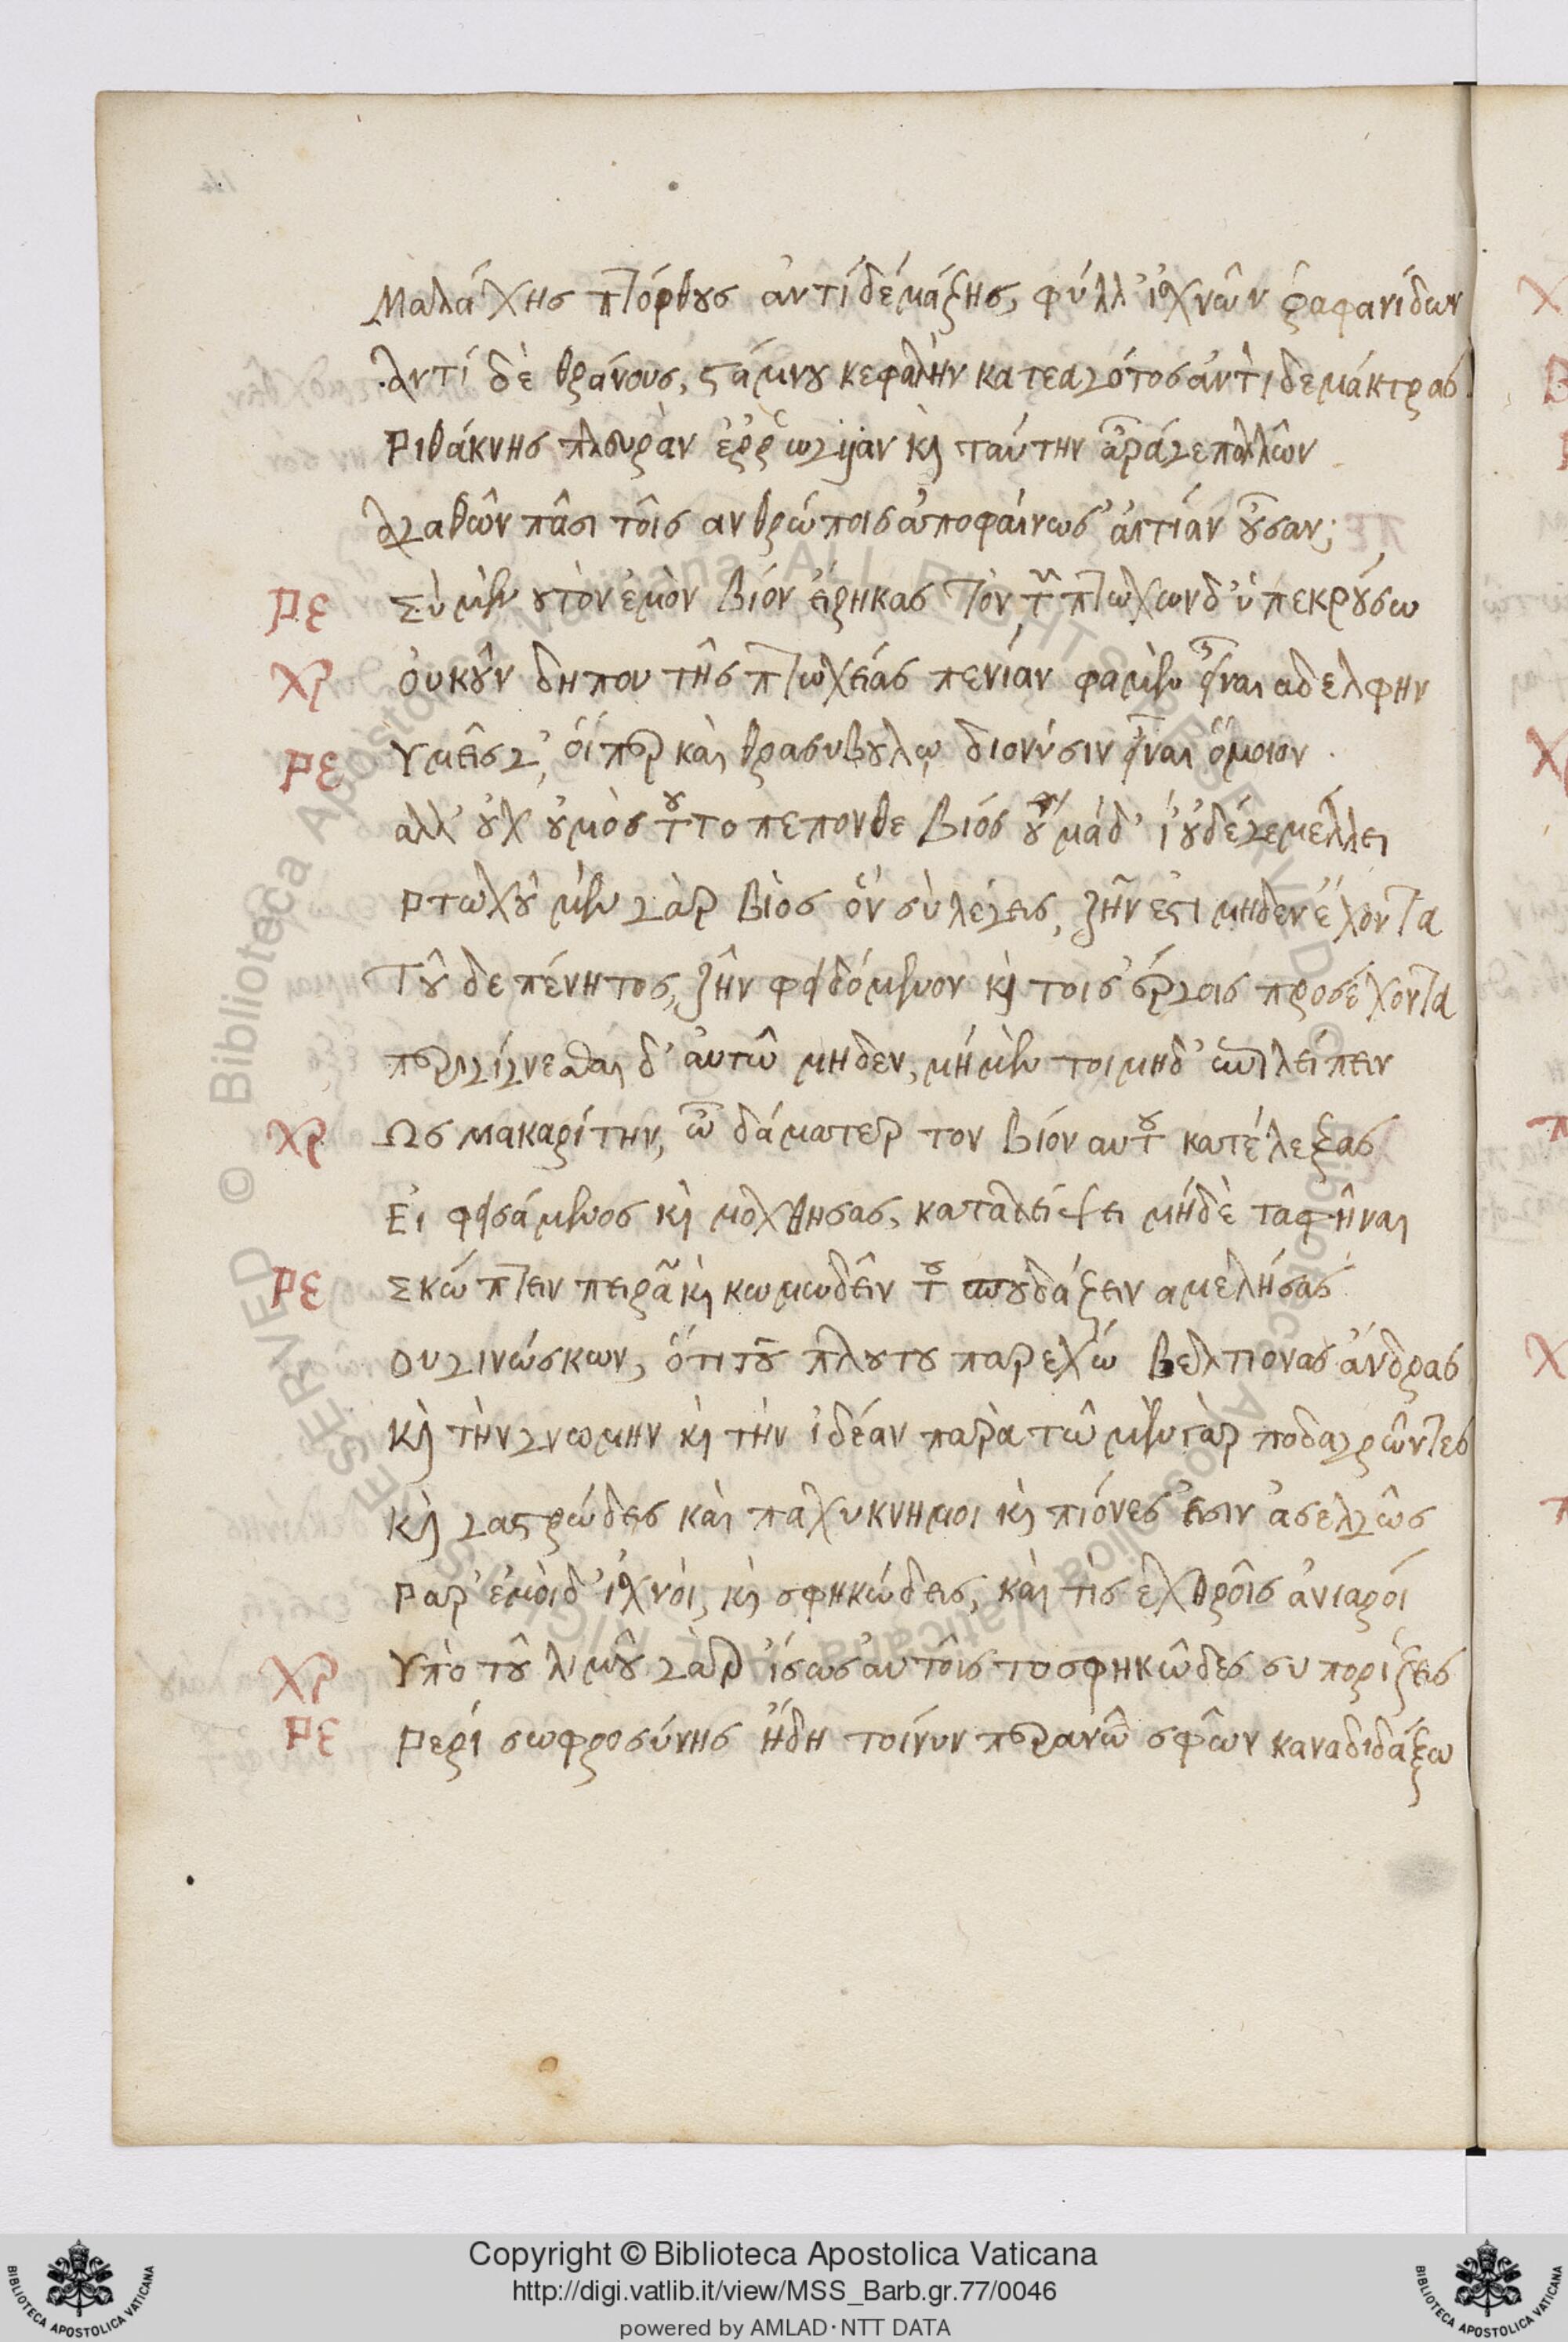 Μαλάχης πτόρθους ἀντὶ δέ μάζης, φύλλ' ἰσχνῶν ῥαφανίδων
Ἀντί δὲ θράνους, στάμνου κεφαλὴν κατεαγότος ἀντὶ δε μάκτρας
Πιθάκνης πλευρὰν ἐῤῥωγυῖαν καὶ ταύτην ἆρά γε πολλῶν
Ἀγαθῶν πᾶσι τοῖς ανθρώποις ἀποφαίνωσ' ἀιτίαν οὖσαν;
ΠΕ Σὺ μὲν οὐ τὸν ἐμὸν βίον εἴρηκας τὸν τῶν πτωχων δ' ὑπεκρούσω
ΧΡ ὀυκοῦν δηπου τῆς πτωχείας πενίαν φαμὲν εἶναι αδελφην
ΠΕ Υμεῖς γ', οἵπερ καὶ θρασυβούλῳ διονύσιν εἶναι ὅμοιον.
αλλ' οὐχ οὑμὸς τοῦτο πεπονθε βιός οὐ μὰ δί' οὐδέ γε μέλλει
Πτωχοῦ μὲν γὰρ βίος ὅν σὺ λέγεις, ζῆν εστι μηδεν ἔχοντα
Τοῦ δε πένητος, ζῆν φειδόμενον καὶ τοις ἔργοις προσέχοντα
περιγίγνεσθαι δ' ἀυτῶ μηδεν, μή μὲν τοι μηδ' ἐπιλείπειν
ΧΡ Ως μακαρίτην, ὦ δάματερ τον βίον αυτοῦ κατέλεξας
Ει φεισάμενος καὶ μοχθησας, καταλείψει μήδὲ ταφῆναι
ΠΕ Σκώπτειν πειρᾶ καὶ κωμωδεῖν τοῦ σπουδάζειν αμελήσας
Ου γινώσκων, ὅτι τοῦ πλουτου παρεχώ βελτιονας ἄνδρας
Καὶ τὴν γνωμην καὶ τὴν ἰδέαν παρὰ τῶ μὲν γὰρ ποδαγρῶντες
Καὶ γαστρώδεις καὶ παχυκνημοι καὶ πιόνες εἰσιν ἀσελγῶς
Παρ' ἐμὸι δ' ἰσχνὸι, καὶ σφηκώδεις, καὶ τὶς εχθρὸις ἀνιαρόι
ΧΡ Υπὸ τοῦ λιμοῦ γὰρ ἴσως ἀυτοῖς το σφηκῶδες συ ποριζεις
ΠΕ Περί σωφροσύνης ἤδη τοίνυν περανῶ σφῶν καναδιδάξω
Copyright © Biblioteca Apostolica Vaticana
http://digi.vatlib.it/view/MSS_Barb.gr.77/0046
powered by AMLAD·NTT DATA